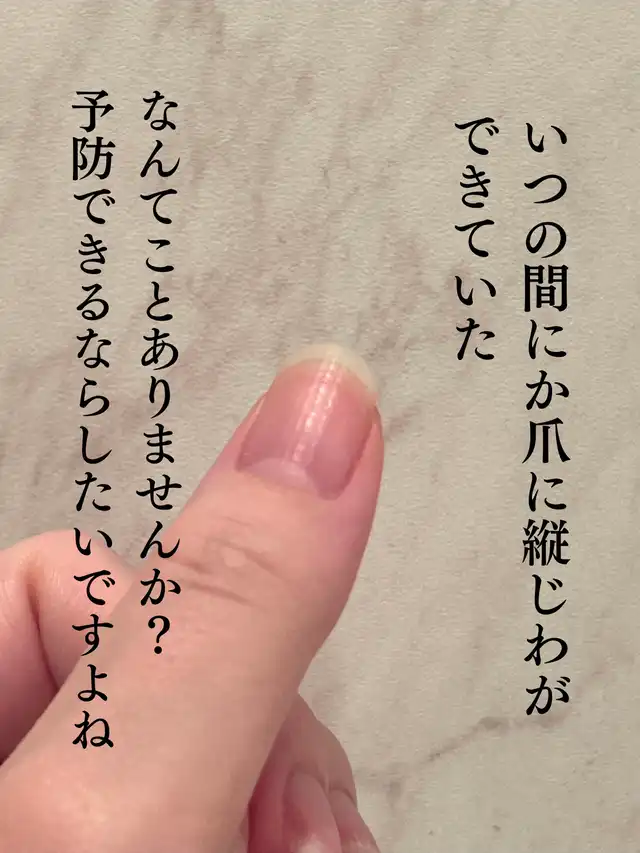 いつの間にか爪に縦じわが
できていた
なんてことありませんか？
予防できるならしたいですよね